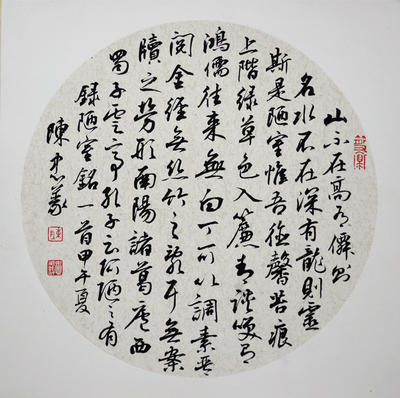 山不在高有僊則
名水不在深有龍則靈
斯是陋室惟吾德馨苔痕
上階綠草色入簾青談笑有
鴻儒往來無白丁可以調素琴
閱金經無絲竹之亂耳無案
牘之勞形南陽諸葛廬西
蜀子雲亭孔子云何陋之有
錄陋室銘一首甲午夏
陳